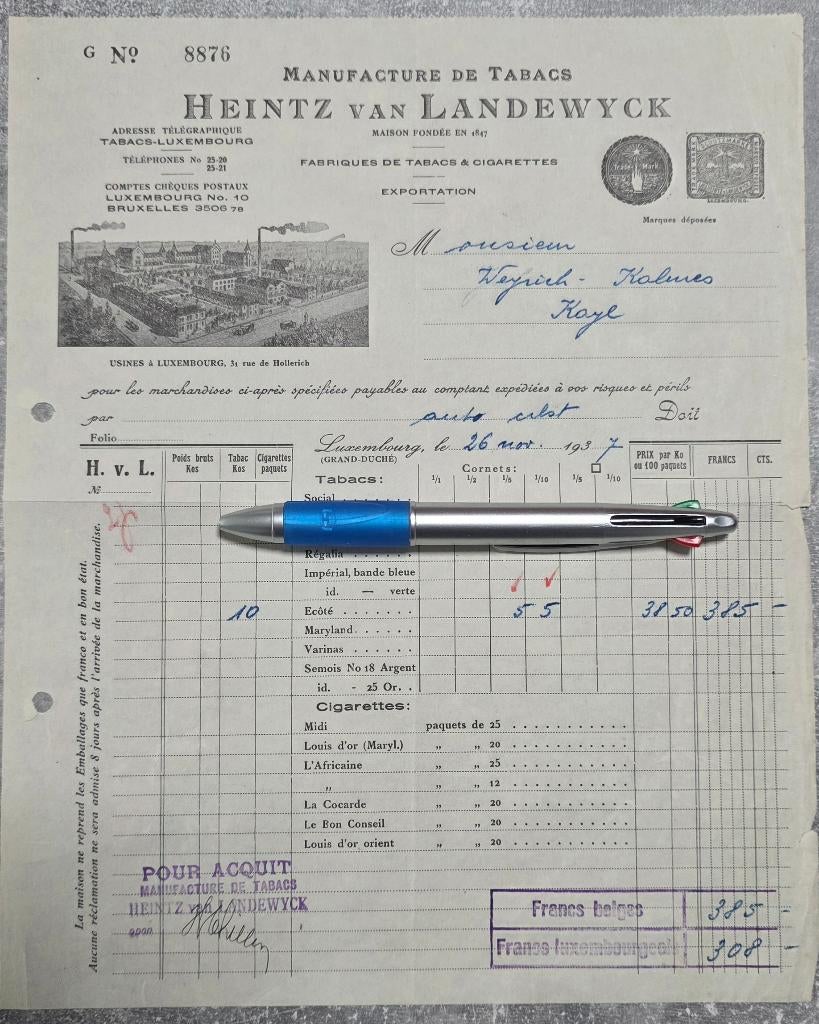 G Nº 8876
MANUFACTURE DE TABACS
HEINTZ VAN LANDEWYCK
MAISON FONDÉE EN 1847
ADRESSE TÉLÉGRAPHIQUE
TABACS-LUXEMBOURG
TÉLÉPHONES No 25-20
25-21
COMPTES CHÈQUES POSTAUX
LUXEMBOURG No. 10
BRUXELLES 3506 78
FABRIQUES DE TABACS & CIGARETTES
EXPORTATION
Trade Mark
SCHUTZ-MARKE
LUXEMBOURG.
Marques déposées
Monsieur
Weyrich-Kalmes
Kayl
USINES à LUXEMBOURG, 31 rue de Hollerich
pour les marchandises ci-après spécifiées payables au comptant expédiées à vos risques et périls
par auto Doit
Folio
Luxembourg, le 26 nov. 1937
(GRAND-DUCHÉ)
H. v. L.
Nº
Poids bruts Kos
Tabac Kos
Cigarettes paquets
Tabacs:
Cornets:
1/1 1/2 1/5 1/10 1/5 1/10
PRIX par Ko ou 100 paquets
FRANCS
CTS.
Social
Régalia
Impérial, bande bleue
id. — verte
10 Ecôté 5 5 38 50 385 -
Maryland
Varinas
Semois No 18 Argent
id. - 25 Or.
Cigarettes:
Midi paquets de 25
Louis d'or (Maryl.) „ „ 20
L'Africaine „ „ 25
„ „ „ 12
La Cocarde „ „ 20
Le Bon Conseil „ „ 20
Louis d'or orient „ „ 20
La maison ne reprend les Emballages que franco et en bon état.
Aucune réclamation ne sera admise 8 jours après l'arrivée de la marchandise.
POUR ACQUIT
MANUFACTURE DE TABACS
HEINTZ van LANDEWYCK
Francs belges 385 -
Francs luxembourgeois 308 -